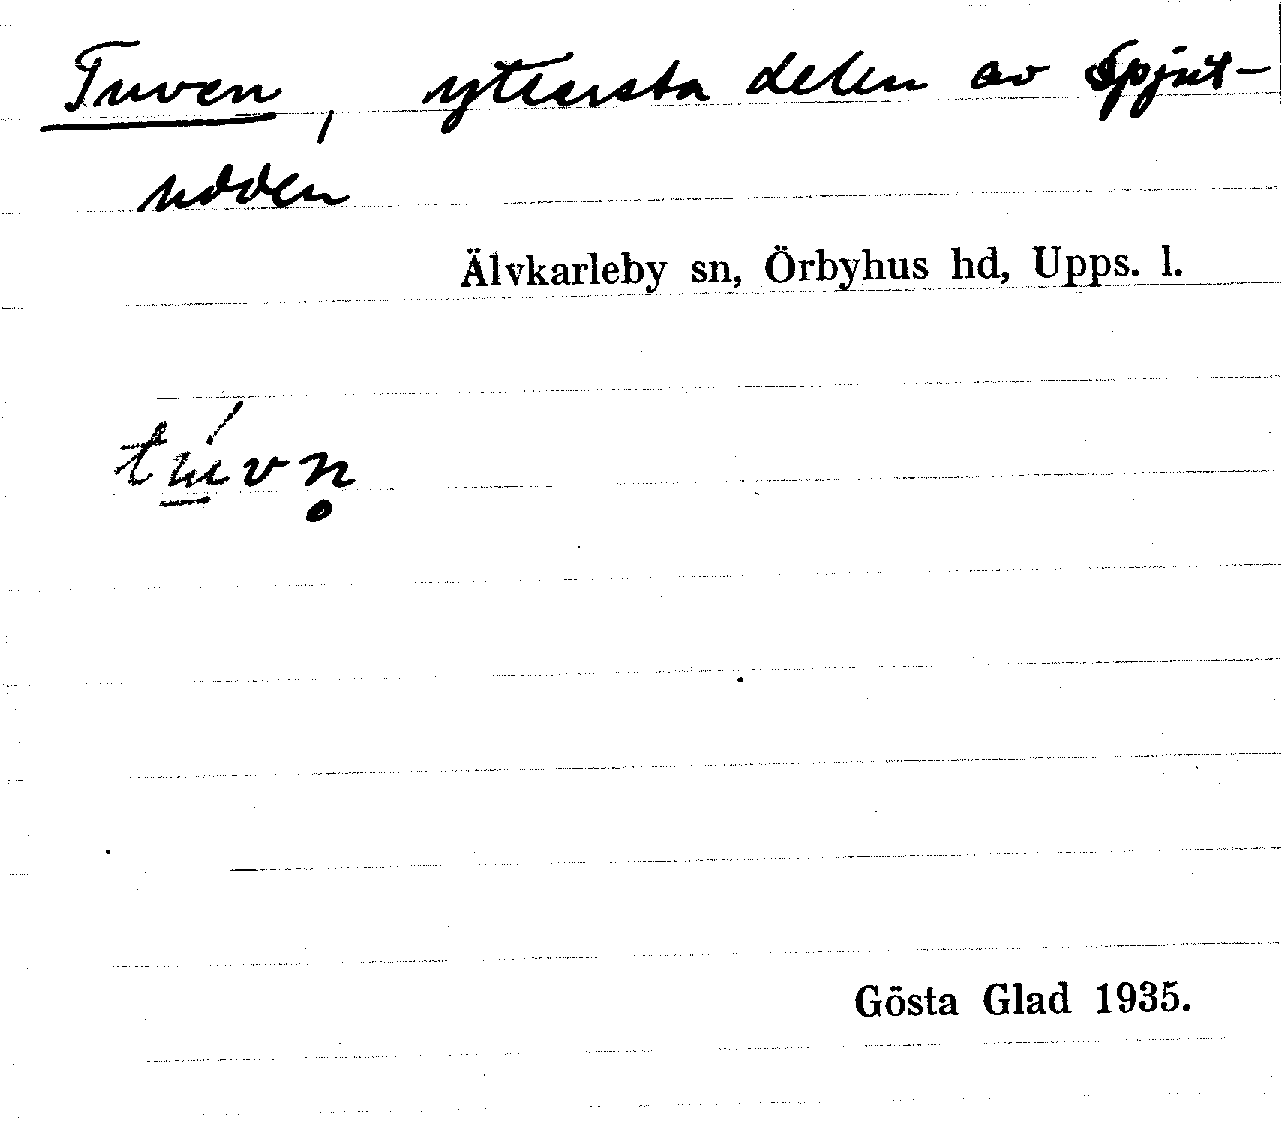 Tuven, yttersta delen av Spjut-
udden
Älvkarleby sn, Örbyhus hd, Upps. l.
tú̲vṇ
Gösta Glad 1935.